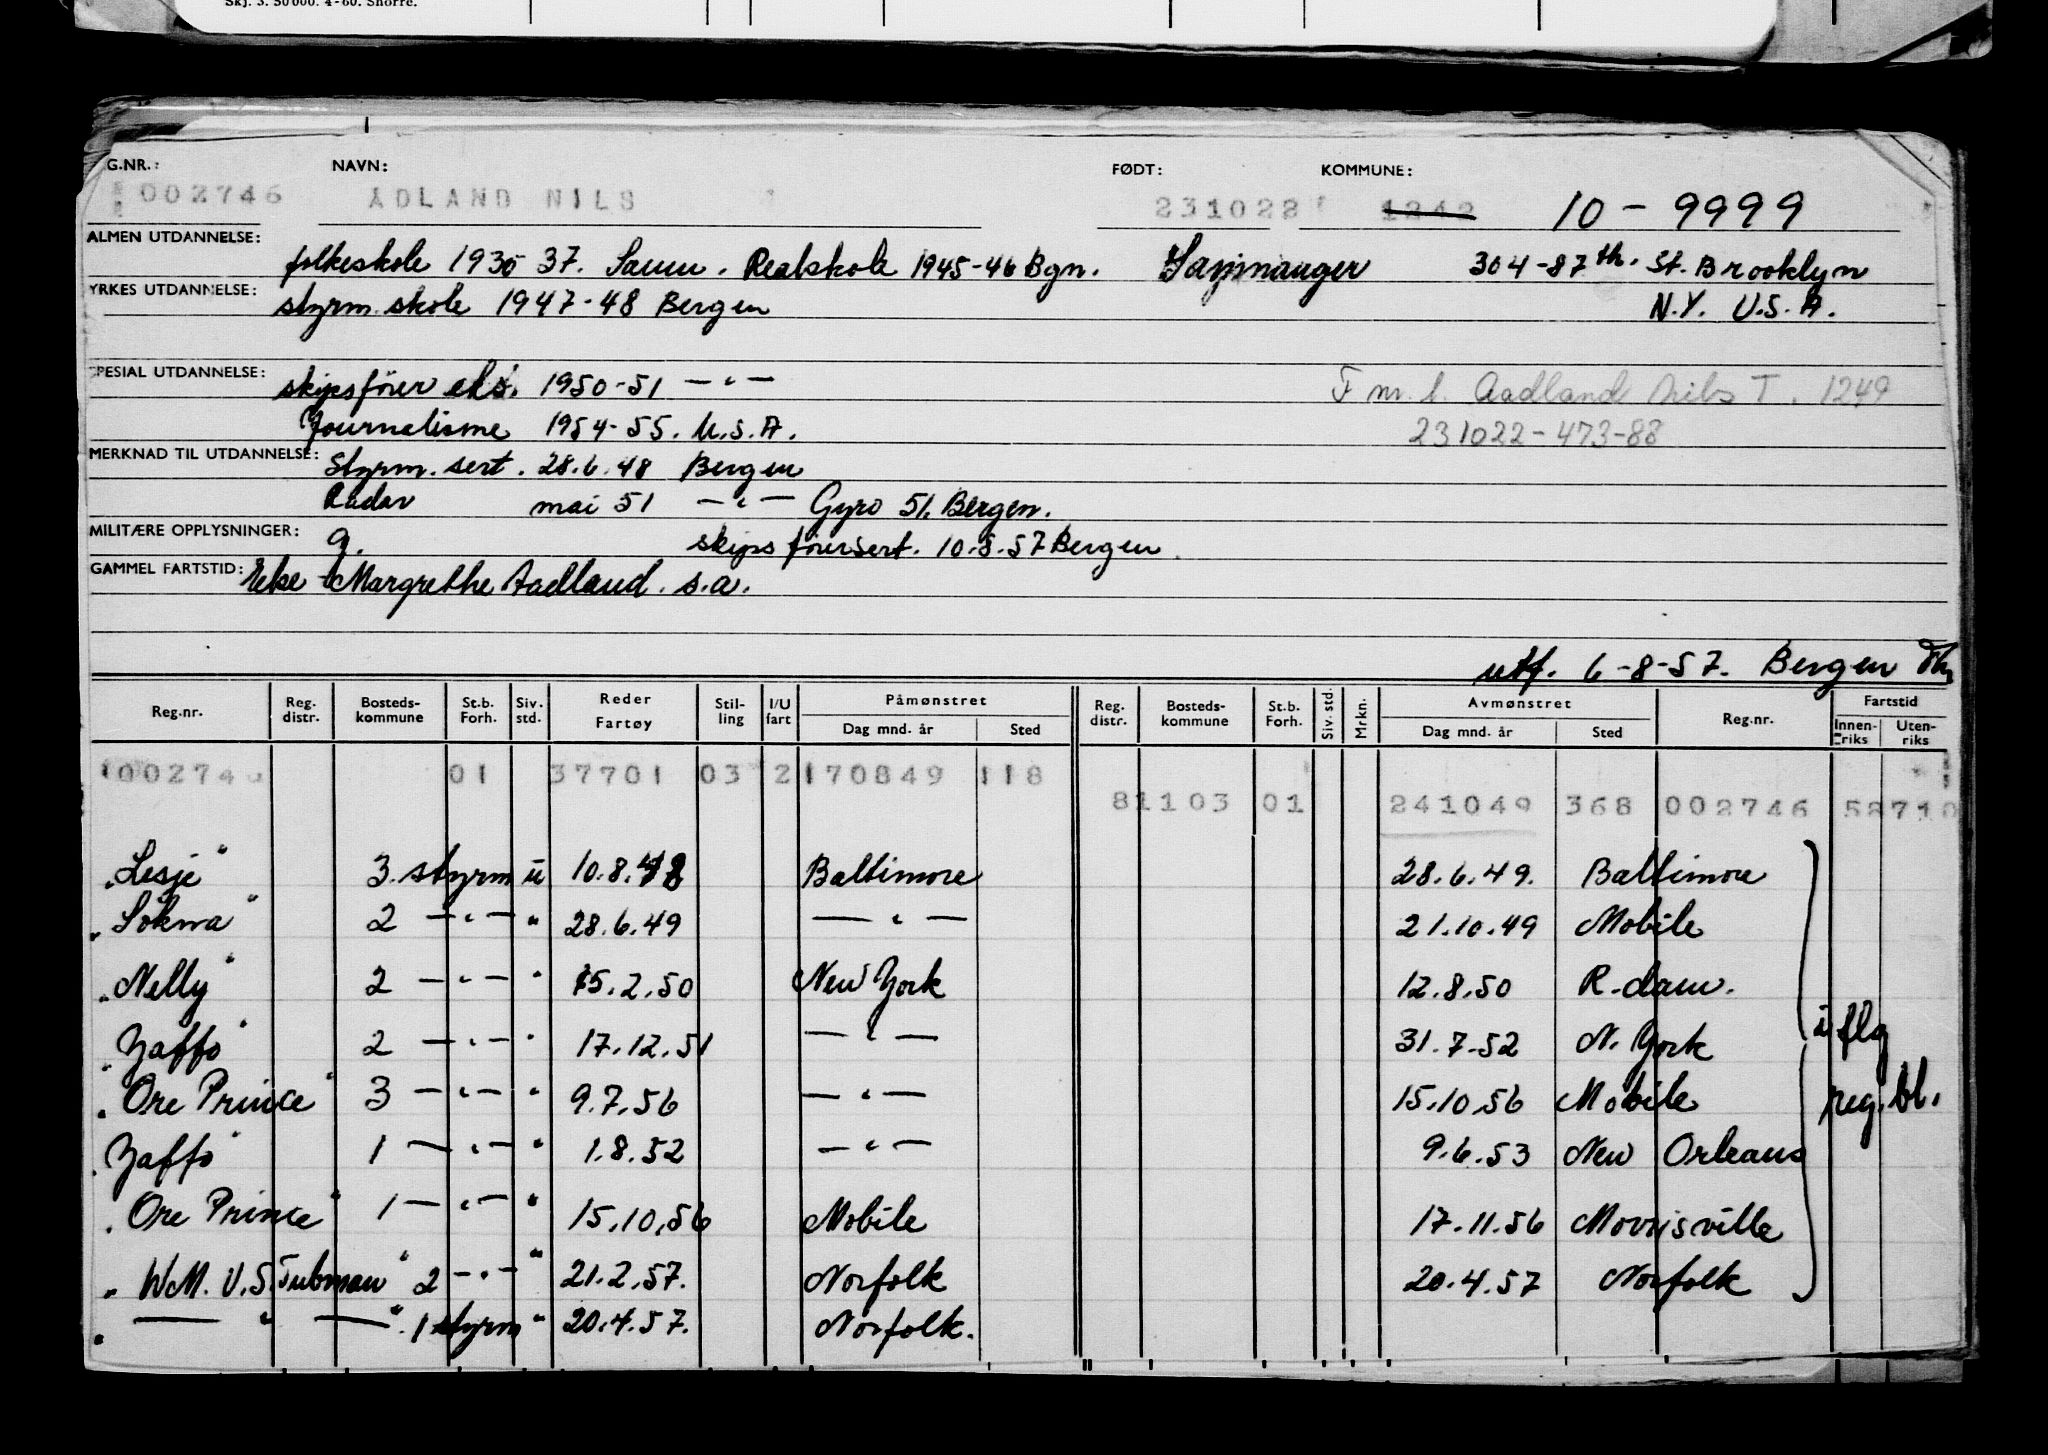 Skj. 3. 50 000. 4-60. Snorre.
G.NR.: NAVN: FØDT: KOMMUNE:
002746 ADLAND NILS 231022 1242 10 - 9999
ALMEN UTDANNELSE: folkeskole 1930 37. Samn. Realskole 1945-46 Bgn. Samnanger 304-87th. St. Brooklyn
YRKES UTDANNELSE: styrm. skole 1947-48 Bergen N.Y. U.S.A.
SPESIAL UTDANNELSE: skipsfører eks. 1950-51 — " — F m. l. Aadland Nils T. 1249
Journalisme 1954-55. U.S.A. 231022-473-88
MERKNAD TIL UTDANNELSE: Styrm. sert. 28.6.48 Bergen
Radar mai 51 — " — Gyro 51. Bergen.
MILITÆRE OPPLYSNINGER: 9. skipsførersert. 10.8.57 Bergen
GAMMEL FARTSTID: Margrethe Aadland. s.a.
utf. 6-8-57. Bergen
Reg.nr. Reg. distr. Bosteds-kommune St.b. Forh. Siv. std. Reder Fartøy Stil-ling I/U fart Påmønstret Dag mnd. år Sted Reg. distr. Bosteds-kommune St.b. Forh. Siv. std. Mrkn. Avmønstret Dag mnd. år Sted Reg.nr. Fartstid Innen-riks Uten-riks
002746 01 37701 03 2 170849 118
81103 01 241049 368 002746 58710
"Lesje" 3. styrm u 10.8.48 Baltimore 28.6.49. Baltimore
"Sokna" 2 — " — " 28.6.49 — " — 21.10.49 Mobile
"Nelly" 2 — " — " 15.2.50 New York 12.8.50 R.dam.
"Jaffo" 2 — " — " 17.12.51 — " — 31.7.52 N. York i flg
"Ore Prince" 3 — " — " 9.7.56 — " — 15.10.56 Mobile reg. bl.
"Jaffo" 1 — " — " 1.8.52 — " — 9.6.53 New Orleans
"Ore Prince" 1 — " — " 15.10.56 Mobile 17.11.56 Morrisville
"WM. V.S. Tubman" 2 — " — " 21.2.57. Norfolk 20.4.57 Norfolk
" — " — " 1 styrm " 20.4.57. Norfolk.